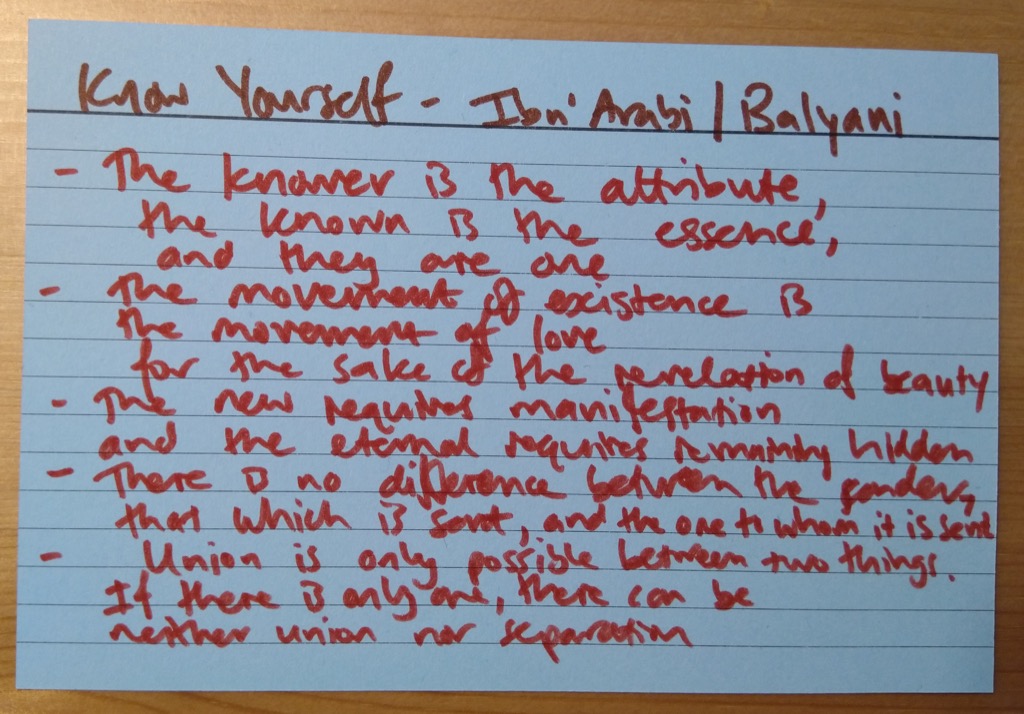 Know Yourself - Ibn 'Arabi / Balyani
- The knower is the attribute,
the known is the essence,
and they are one
- The movement of existence is
the movement of love
for the sake of the revelation of beauty
- The new requires manifestation
and the eternal requires remaining hidden
- There is no difference between the sender,
that which is sent, and the one to whom it is sent
- Union is only possible between two things.
If there is only one, there can be
neither union nor separation